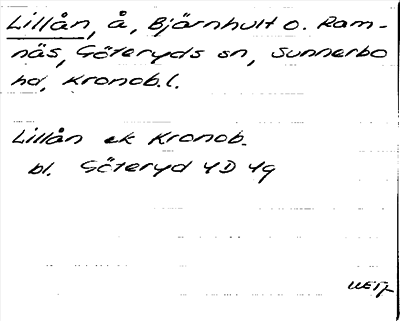 Lillån, å, Bjärnhult o. Ram-
näs, Göteryds sn, Sunnerbo
hd, Kronob.l.
Lillån ek Kronob.
bl. Göteryd 4D 4g